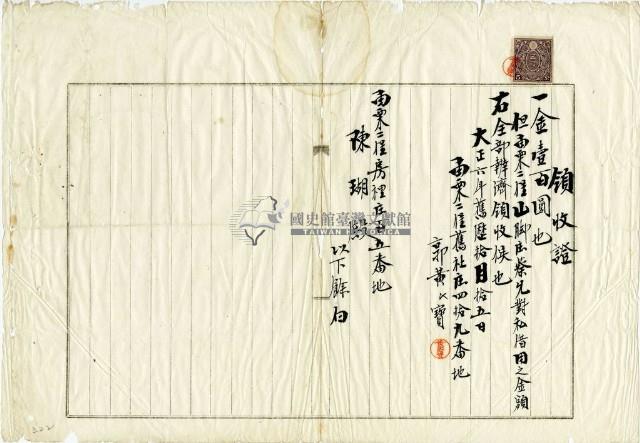 領收證
一金壹百圓也
但苗栗二堡山腳庄蔡兄對私借用之金額
右全部辨濟領收候也
大正六年舊歷拾月拾五日
苗栗二堡舊社庄四拾九番地
郭黃氏寶
苗栗二堡房裡庄五番地
陳瑚殿
以下餘白
國史館臺灣文獻館
TAIWAN HISTORICA
322